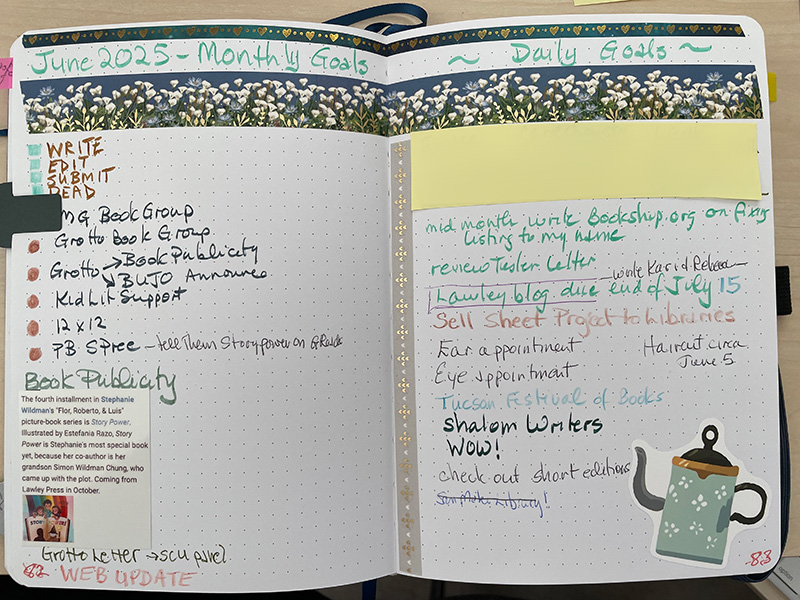 June 2025 - Monthly Goals
WRITE
EDIT
SUBMIT
READ
MG Book Group
Grotto Book Group
Grotto → Book Publicity
→ BUJO Announce
KidLit Support
12 x 12
PB Spree - tell them Story power on
Book Publicity
The fourth installment in Stephanie
Wildman's "Flor, Roberto, & Luis"
picture-book series is Story Power.
Illustrated by Estefania Razo, Story
Power is Stephanie's most special book
yet, because her co-author is her
grandson Simon Wildman Chung, who
came up with the plot. Coming from
Lawley Press in October.
Grotto Letter → SCU panel
82 WEB UPDATE
~ Daily Goals ~
mid month write Bookshop.org on fixing
listing to my name
review Tester Letter
write Kari & Rebecca
Lawley blog due end of July 15
Sell Sheet Project to Libraries
Ear appointment
Haircut circa
June 5
Eye appointment
Tucson Festival of Books
Shalom Writers
WOW!
check out short editions
Library!
83